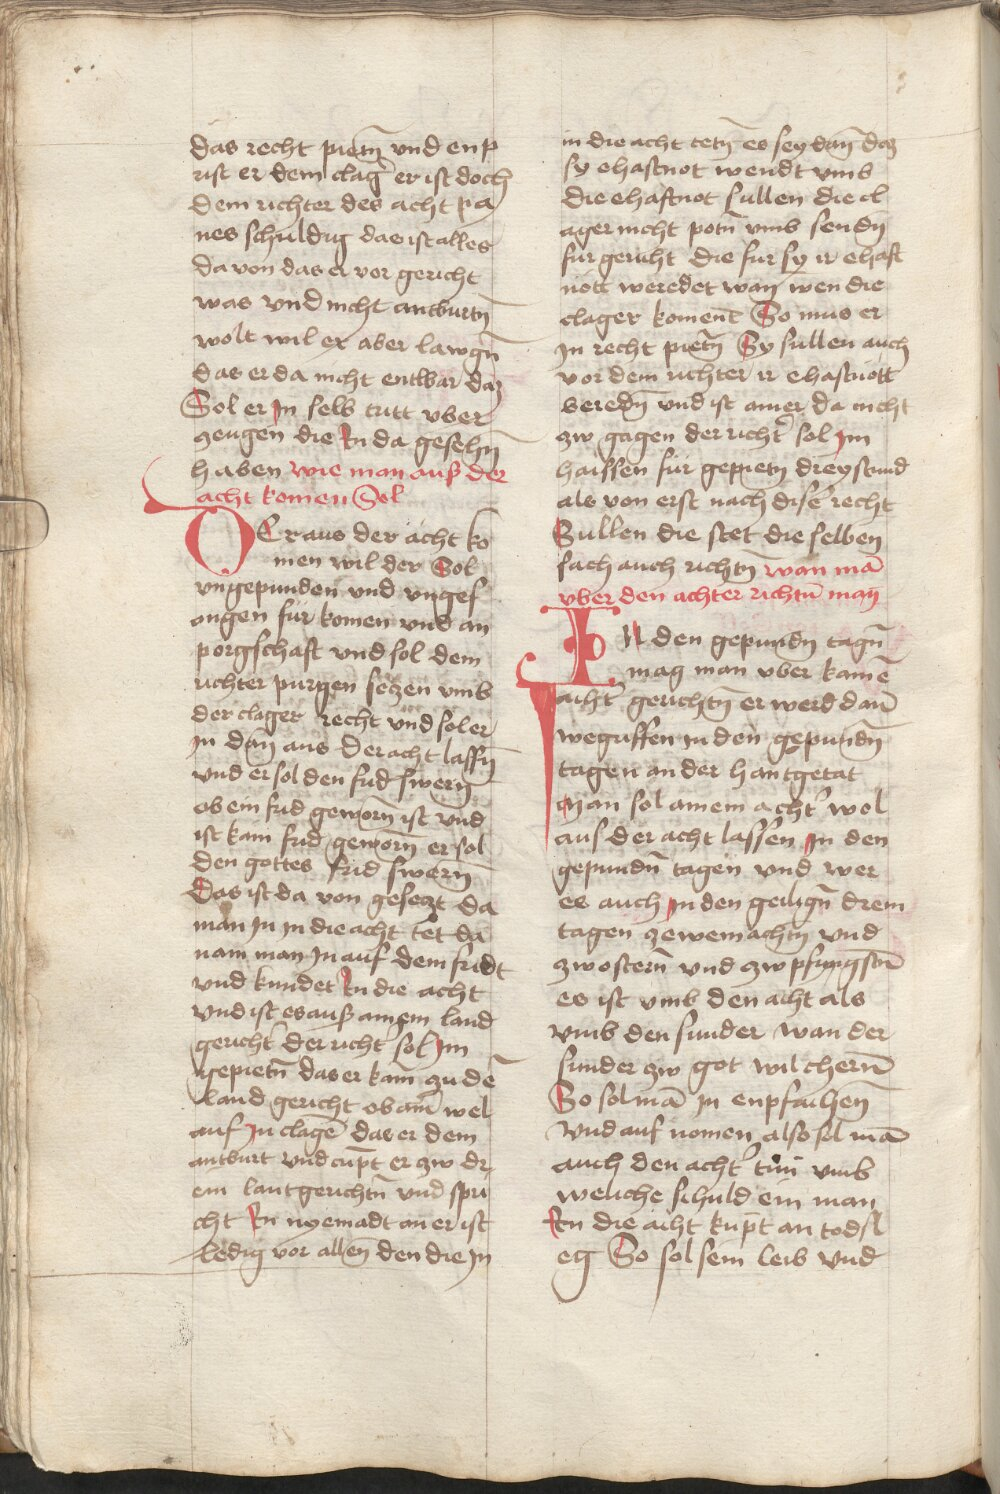 das recht pietn̄ vnd enp
rist er dem clag er ist doch
dem richter des acht pa
nes schuldig das ist alles
da von das er vor gericht
was vnd nicht antburtn̄
wolt wil er aber lawgn̄
das er da nicht entbar daz
Sol er Jn selb tritt vber
zeugen die Jn da gesehn̄
haben wie man auß der
acht komen Sol
DEr aus der acht ko
men wil der Sol
vngepunden vnd vngef
angen für komen vnd an
porgschaft vnd sol dem
richter purgen sezen vmb
der clager recht vnd sol er
in dan̄ aus der acht lassn̄
vnd er sol den frid swern̄
ob ein frid geworn̄ ist vnd
ist kain frid geworn̄ er sol
den gottes frid swern̄
Das ist da von gesezt da
man Jn in die acht tet da
nam man Jn auf dem fridt
vnd kundet Jn die acht
vnd ist es auß ainem land
gericht der richt̉ sol Jm
gepietn̄ das er kam̄ zu dē
land gericht ob aim̄ wel
auf Jn clagē das er dem
antburt vnd cūpt er zw dr
ein lantgerichtn̄ vnd spri
cht Jn nyemadt an er ist
ledig vor allen̄ den die Jn
in die acht tetn̄ es sey dan̄ daz
sy ehaftnot wendt vmb
die ehaftnot sullen die cl
ager nicht potn̄ vmb sendn̄
fur gericht die fur sy ir ehaft
nott weredet wan̄ wen die
clager koment̄ So mus er
Jn recht pietn̄ Sy sullen auch
vor dem richter ir ehaftnott
beredn̄ vnd ist ainer da nicht
zw gagen der richt̉ sol Jm
haissen für gepietn̄ dreystund
als von erst nach disē recht
Sullen die stet die selben
sach auch richtn̄ wan mā
vber den achter richtn̄ mag
IN den gepundn̄ tagn̄
mag man vber kainē
acht̉ gerichtn̄ er werd dan̄
wegriffen in den gepundn̄
tagen an der hantgetat
Man sol ainem acht̉ wol
aus der acht lassen Jn den
gepundn̄ tagen vnd wer
es auch Jn den heilign̄ drein
tagen ze weinachtn̄ vnd
zw ostern̄ vnd zw pfingstn̄
es ist vmb den acht als
vmb den sunder wan der
sunder zw got wil chern̄
So sol mā in enpfachen̄
vnd auf nomen also sol mā
auch den acht̉ tun vmb
weliche schuld ein man
Jn die acht kūpt an todsl
eg So sol sein leib vnd